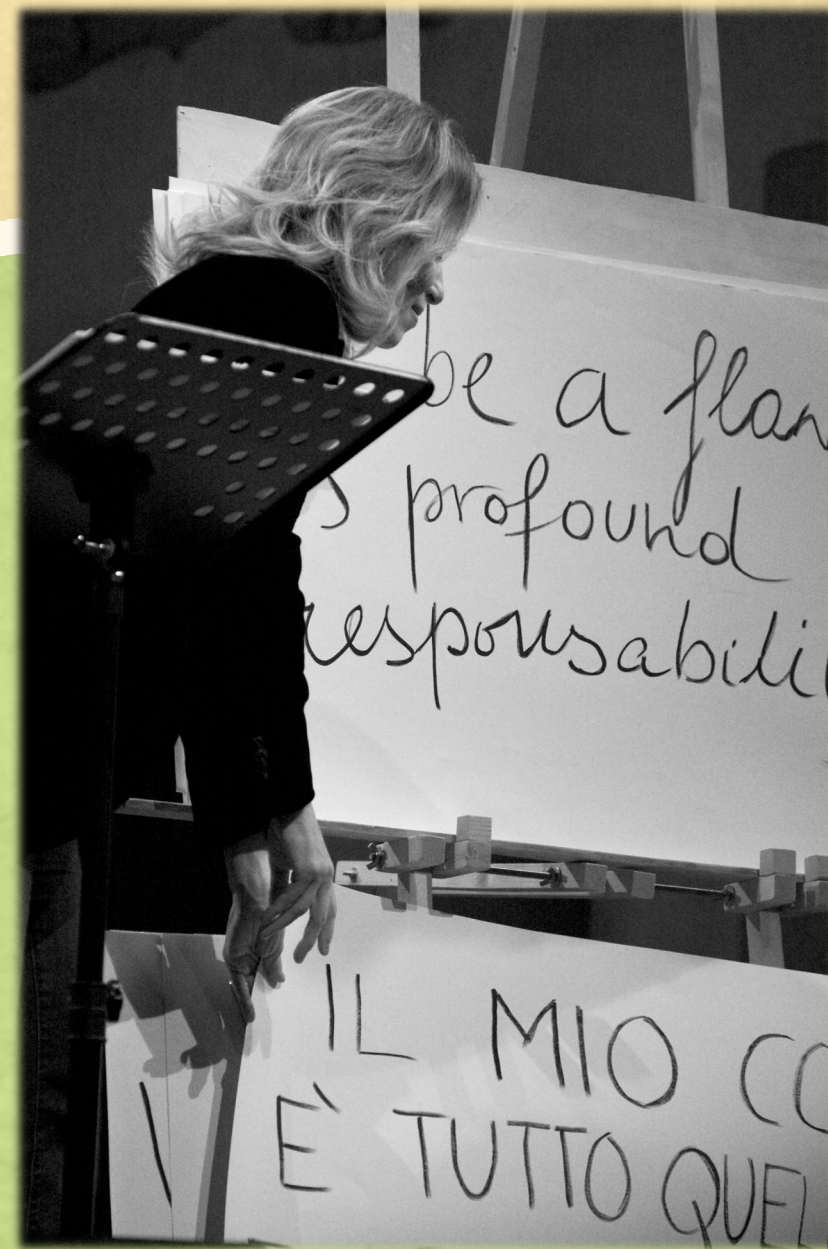 be a flam
s profound
responsabili
IL MIO CO
È TUTTO QUEL